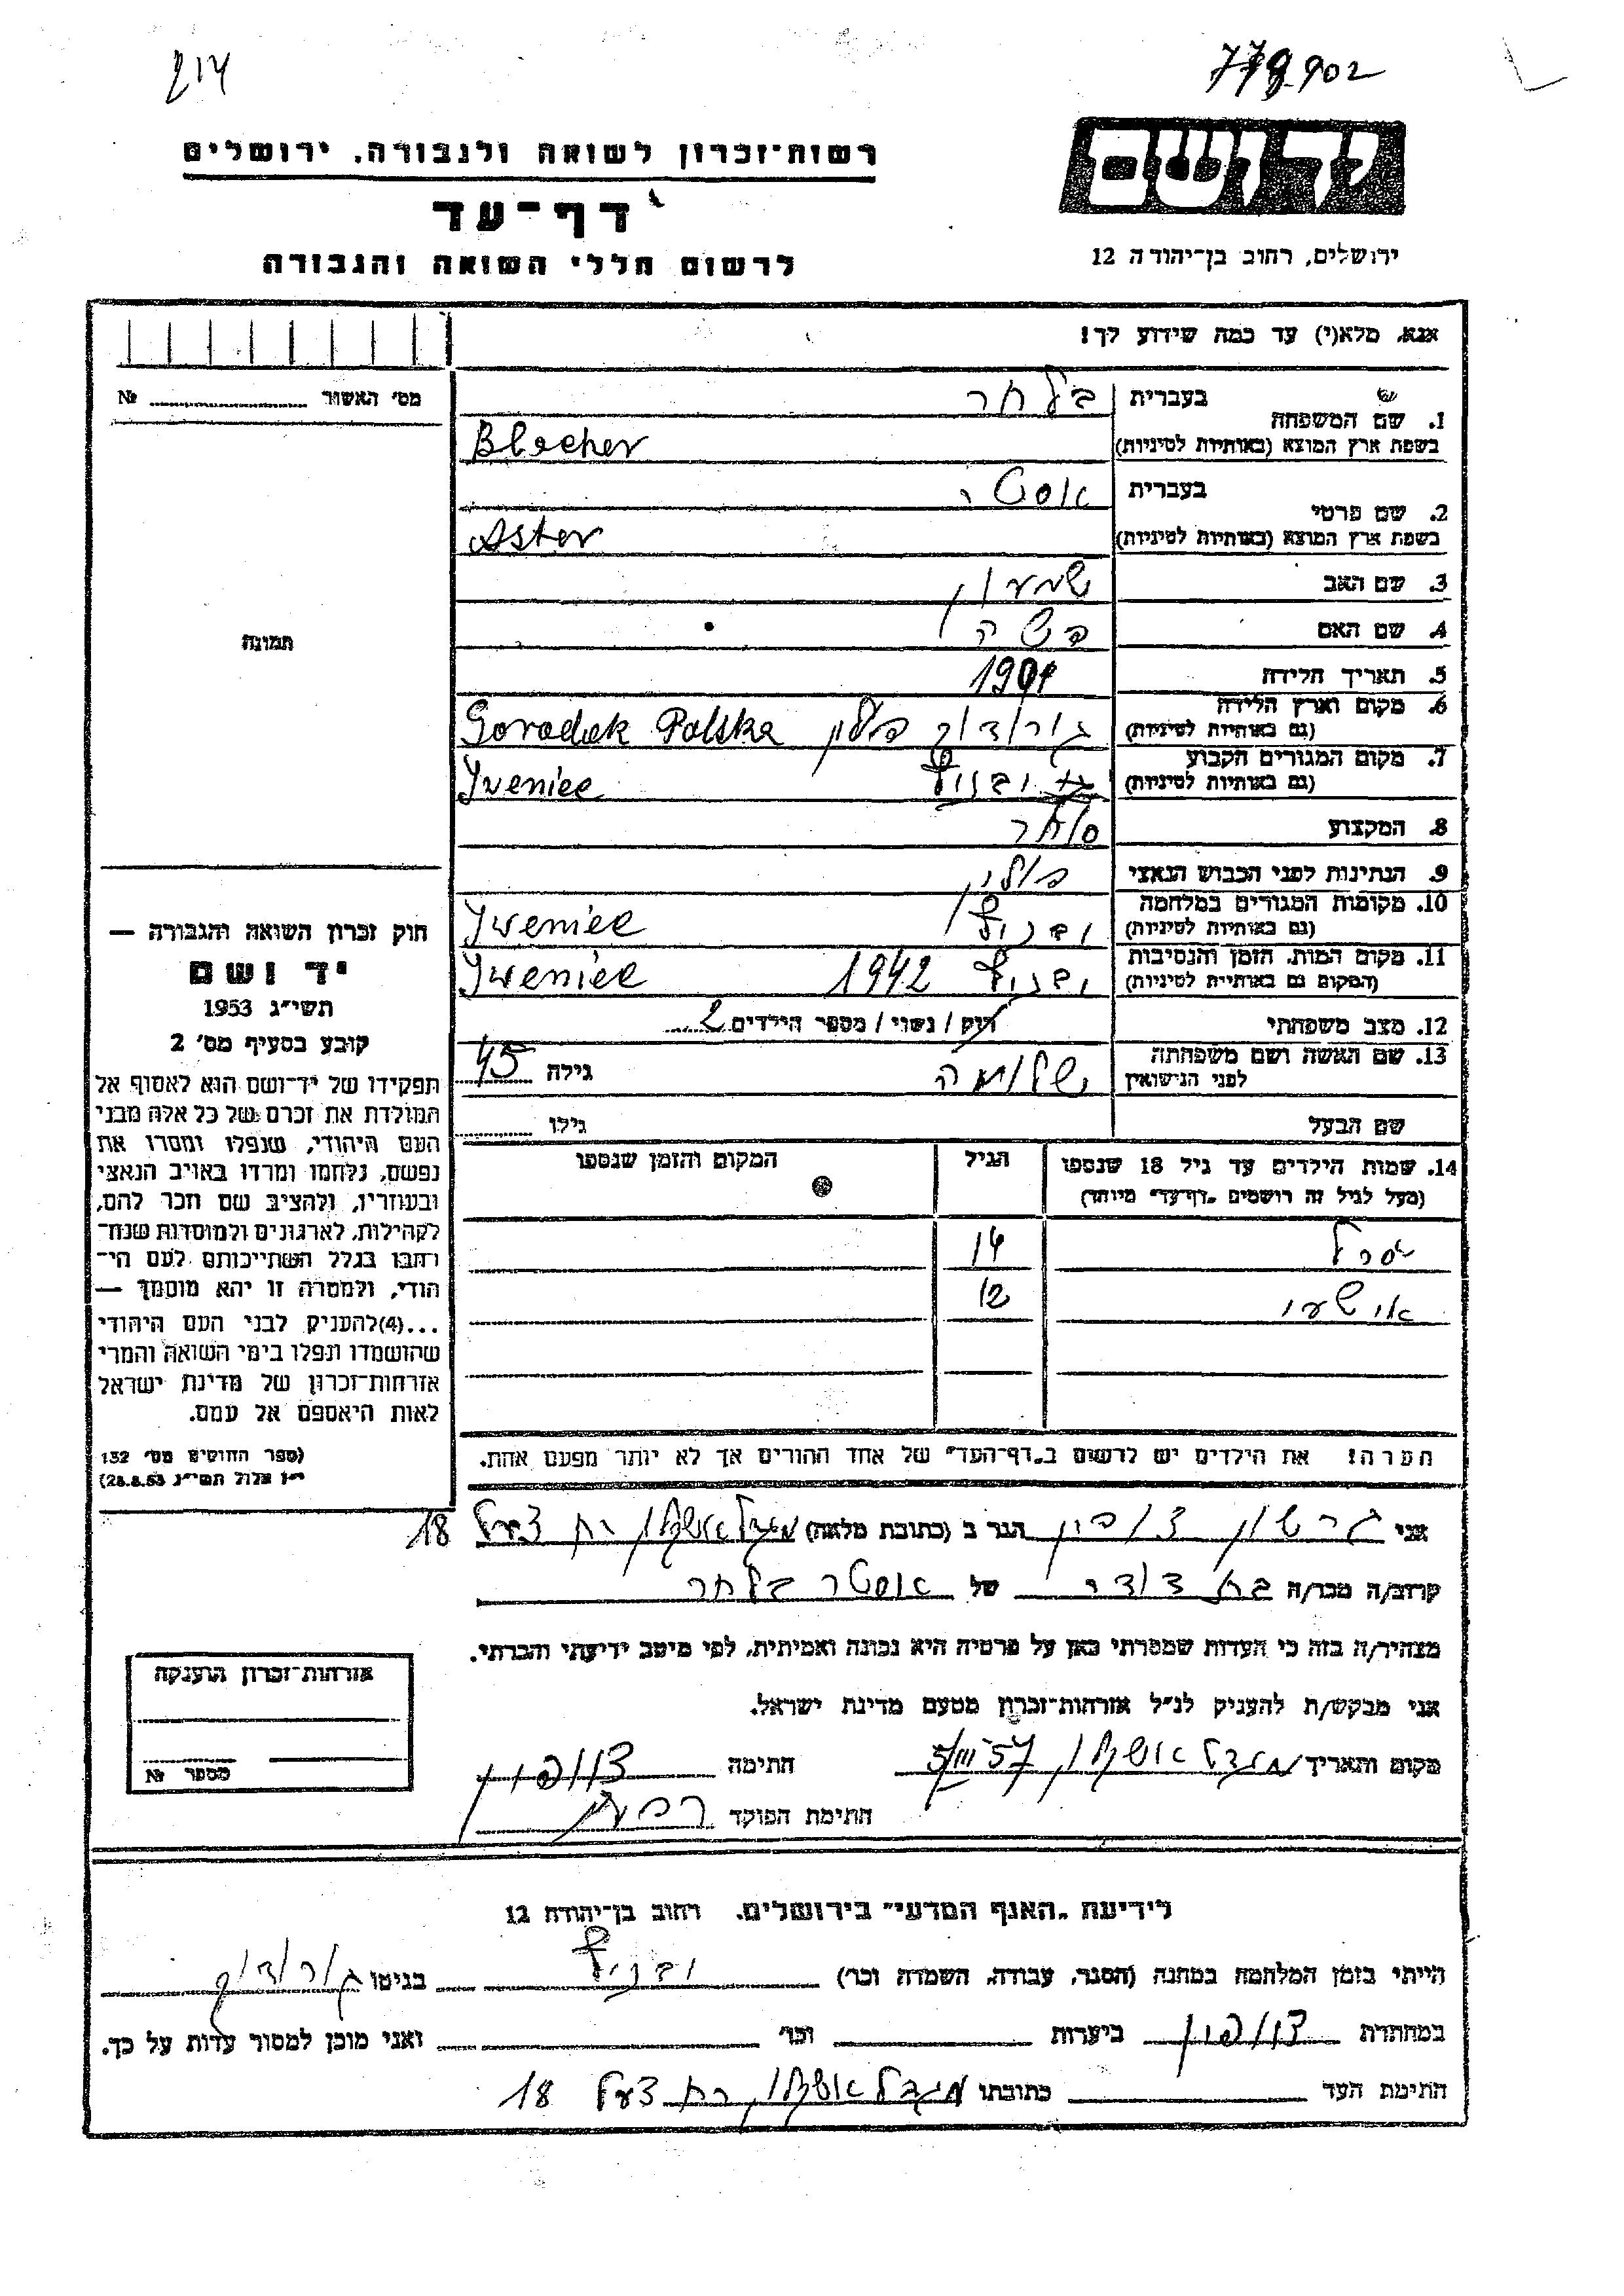 214
778902
יד ושם
רשות-זכרון לשואה ולגבורה, ירושלים
דף-עד
לרשום חללי השואה והגבורה
ירושלים, רחוב בן-יהודה 12
אנא, מלא(י) עד כמה שידוע לך!
מס' האשור № 
1. שם המשפחה
בעברית בלחר
בשפת ארץ המוצא (באותיות לטיניות) Blecher
2. שם פרטי
בעברית אסטר
בשפת ארץ המוצא (באותיות לטיניות) Aster
3. שם האב שמעון
4. שם האם
5. תאריך הלידה
6. מקום וארץ הלידה (גם באותיות לטיניות) גורודוק פולין Gorodek Polska
7. מקום המגורים הקבוע (גם באותיות לטיניות) Iveniec
8. המקצוע סוחר
9. הנתינות לפני הכבוש הנאצי פולין
10. מקומות המגורים במלחמה (גם באותיות לטיניות) Iveniec
11. מקום המות, הזמן והנסיבות (המקום גם באותיות לטיניות) 1942 Iweniec
12. מצב משפחתי רווק / נשוי / מספר הילדים 2
13. שם האשה ושם משפחתה לפני הנישואין שלומה גילה 45
שם הבעל גילו
14. שמות הילדים עד גיל 18 שנספו (מעל לגיל זה רושמים "דף-עד" מיוחד) הגיל המקום והזמן שנספו
14
12
הערה! את הילדים יש לרשום ב"דף-העד" של אחד ההורים אך לא יותר מפעם אחת.
תמונה
חוק זכרון השואה והגבורה —
יד ושם
תשי"ג 1953
קובע בסעיף מס' 2
תפקידו של יד-ושם הוא לאסוף אל
המולדת את זכרם של כל אלה מבני
העם היהודי, שנפלו ומסרו את
נפשם, נלחמו ומרדו באויב הנאצי
ובעוזריו, ולהציב שם וזכר להם,
לקהילות, לארגונים ולמוסדות שנח-
רבו בגלל השתייכותם לעם הי-
הודי, ולמטרה זו יהא מוסמך —
...(4) להעניק לבני העם היהודי
שהושמדו ונפלו בימי השואה והמרי
אזרחות-זכרון של מדינת ישראל
לאות היאספם אל עמם.
(ספר החוקים מס' 132
י"ז אלול תשי"ג 28.8.53)
אני גרשון הגר ב (כתובת מלאה) מגדל אשקלון 18
קרוב/ה מכר/ה של אסטר בלחר
מצהיר/ה בזה כי העדות שמסרתי כאן על פרטיה היא נכונה ואמיתית, לפי מיטב ידיעתי והכרתי.
אני מבקש/ת להעניק לנ"ל אזרחות-זכרון מטעם מדינת ישראל.
מקום ותאריך מגדל אשקלון, 5/III 57 חתימה
חתימת הפוקד
אזרחות-זכרון הוענקה
מספר №
לידיעת "האגף המדעי" בירושלים, רחוב בן-יהודה 12
הייתי בזמן המלחמה במחנה (הסגר, עבודה, השמדה וכו') בגיטו גורודוק
במחתרת ביערות וכו' ואני מוכן למסור עדות על כך.
חתימת העד כתובתו מגדל אשקלון, 18